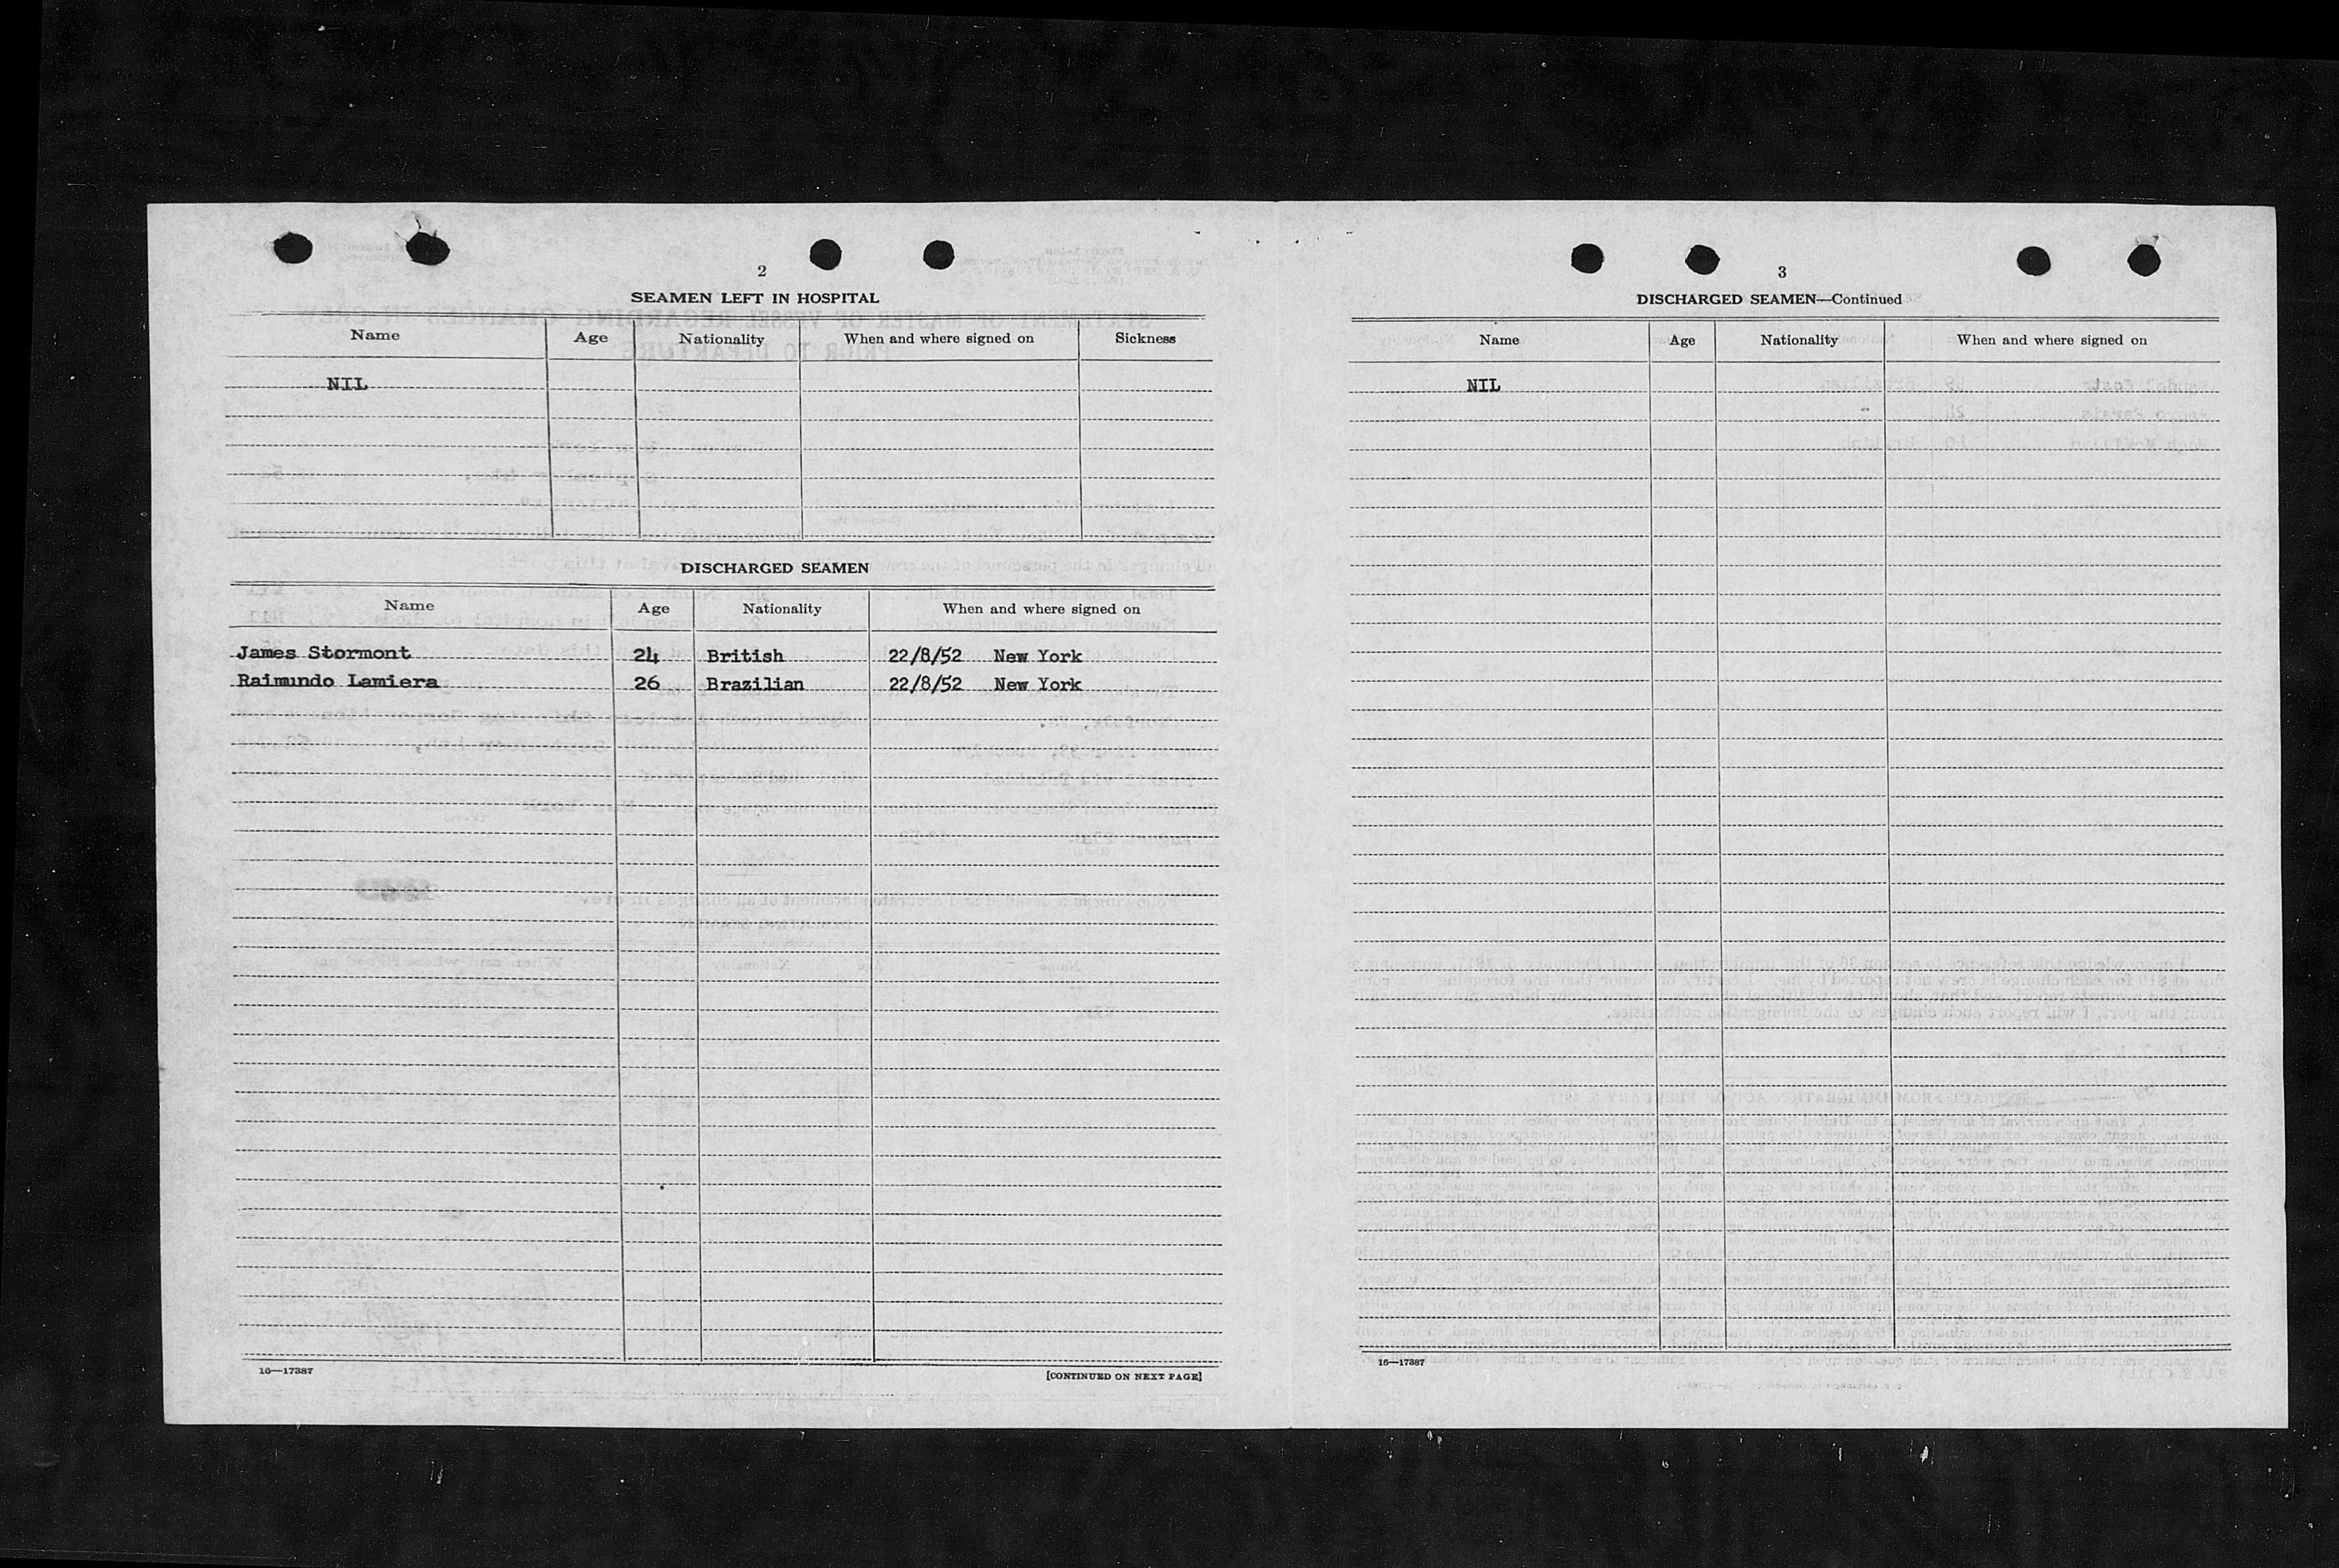 2
SEAMEN LEFT IN HOSPITAL
Name Age Nationality When and where signed on Sickness
NIL
DISCHARGED SEAMEN
Name Age Nationality When and where signed on
James Stormont 24 British 22/8/52 New York
Raimundo Lamiera 26 Brazilian 22/8/52 New York
16—17387
[CONTINUED ON NEXT PAGE]
3
DISCHARGED SEAMEN—Continued
Name Age Nationality When and where signed on
NIL
16—17387